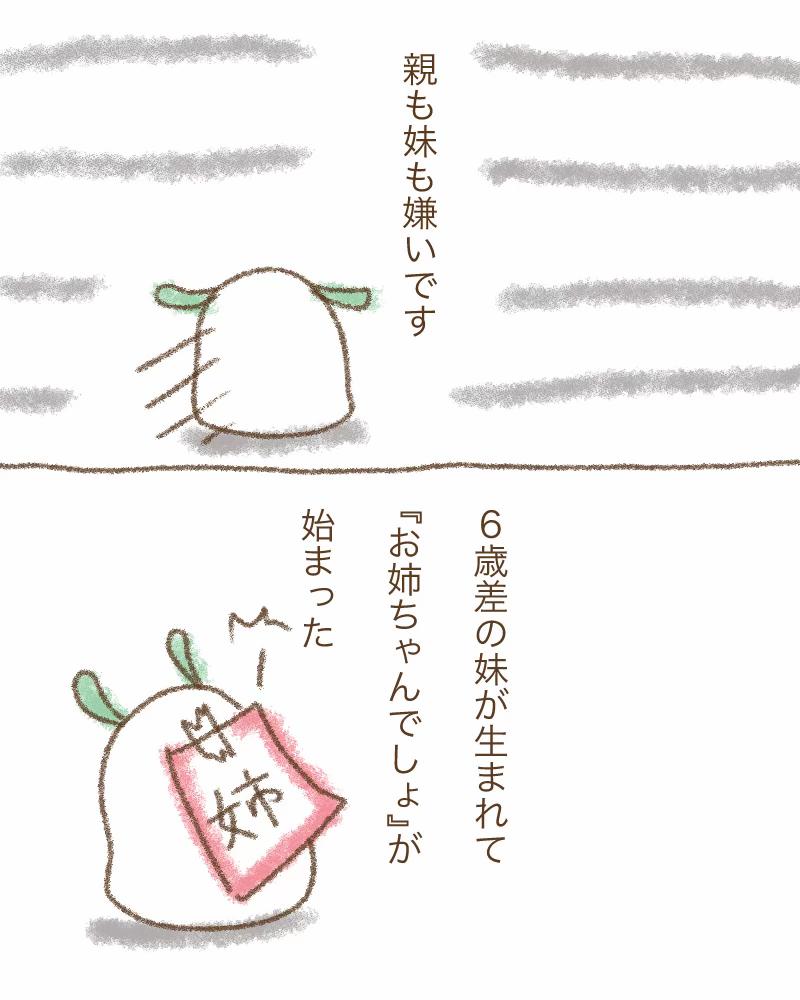 親も妹も嫌いです
６歳差の妹が生まれて
『お姉ちゃんでしょ』が
始まった
姉